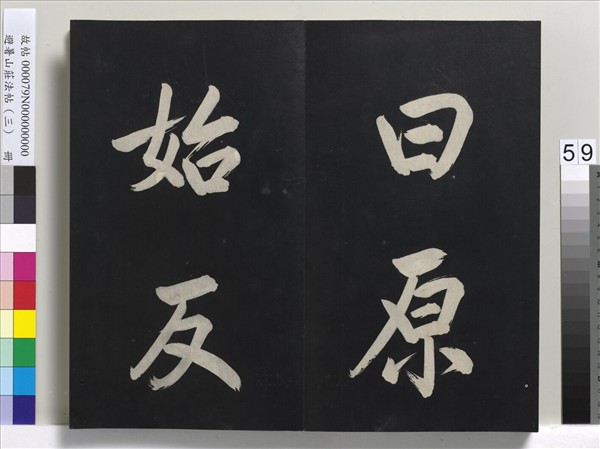 曰原
始反
故帖 000079N000000000
避暑山莊法帖(三) 冊
59